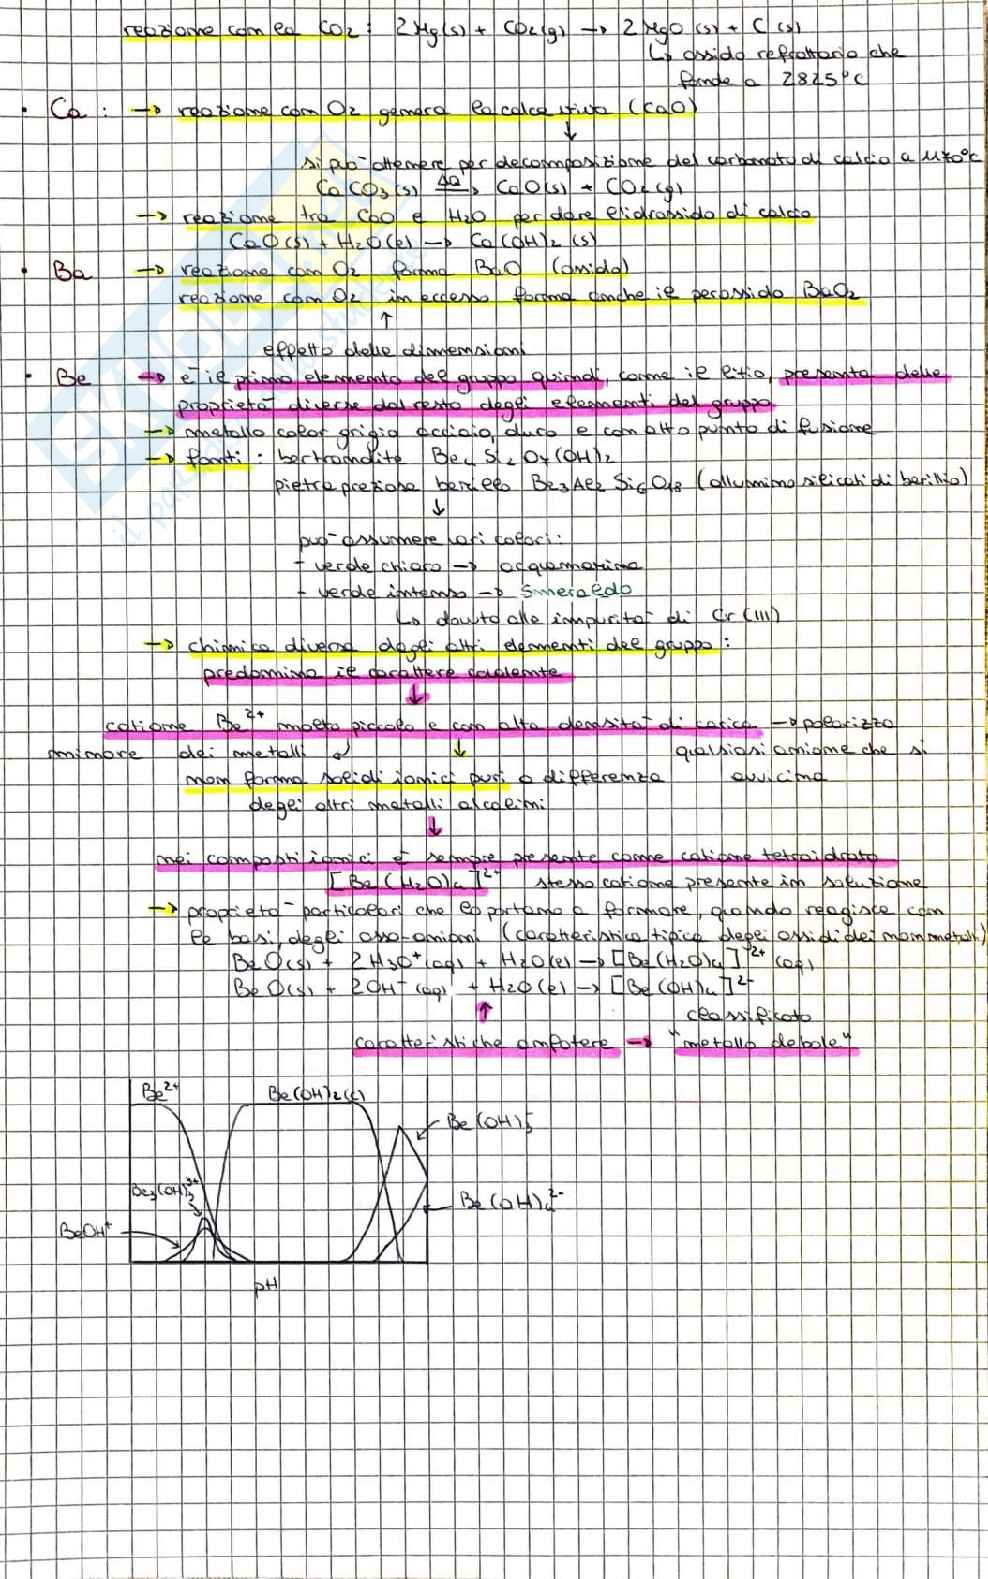 reazione con la CO2: 2Mg(s) + CO2(g) → 2MgO(s) + C(s)
↳ ossido refrattario che
fonde a 2825°C
• Ca: → reazione con O2 genera la calce viva (CaO)
↓
si può ottenere per decomposizione del carbonato di calcio a 1170°C
CaCO3(s) → CaO(s) + CO2(g)
→ reazione tra CaO e H2O per dare l'idrossido di calcio
CaO(s) + H2O(l) → Ca(OH)2(s)
• Ba → reazione con O2 forma BaO (ossido)
reazione con O2 in eccesso forma anche il perossido BaO2
↑
effetto delle dimensioni
• Be → è il primo elemento del gruppo quindi, come il litio, presenta delle
proprietà diverse dal resto degli elementi del gruppo
→ metallo color grigio acciaio, duro e con alto punto di fusione
→ fonti: bertrandite Be4Si2O7(OH)2
pietra preziosa berillo Be3Al2Si6O18 (alluminosilicati di berillio)
↓
può assumere vari colori:
- verde chiaro → acquamarina
- verde intenso → smeraldo
↳ dovuto alle impurità di Cr(III)
→ chimica diversa dagli altri elementi del gruppo:
predomina il carattere covalente
↓
catione Be2+ molto piccolo e con alta densità di carica → polarizza
minore dei metalli ↲ ↓ qualsiasi anione che si
non forma solidi ionici puri a differenza avvicina
degli altri metalli alcalini
↓
nei composti ionici è sempre presente come catione tetraidrato
[Be(H2O)4]2+ stesso catione presente in soluzione
→ proprietà particolari che lo portano a formare, quando reagisce con
le basi, degli osso-anioni (caratteristica tipica degli ossidi dei non metalli)
BeO(s) + 2H3O+(aq) + H2O(l) → [Be(H2O)4]2+(aq)
BeO(s) + 2OH-(aq) + H2O(l) → [Be(OH)4]2-
↑ classificato
caratteristiche anfotere → "metallo debole"
Be2+ Be(OH)2(s)
Be(OH)3-
Be3(OH)3 3+
Be(OH)4 2-
BeOH+
pH